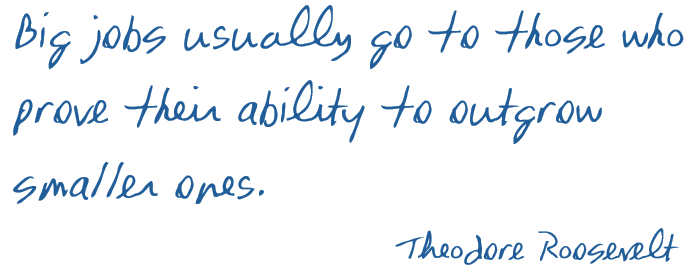 Big jobs usually go to those who
prove their ability to outgrow
smaller ones.
Theodore Roosevelt